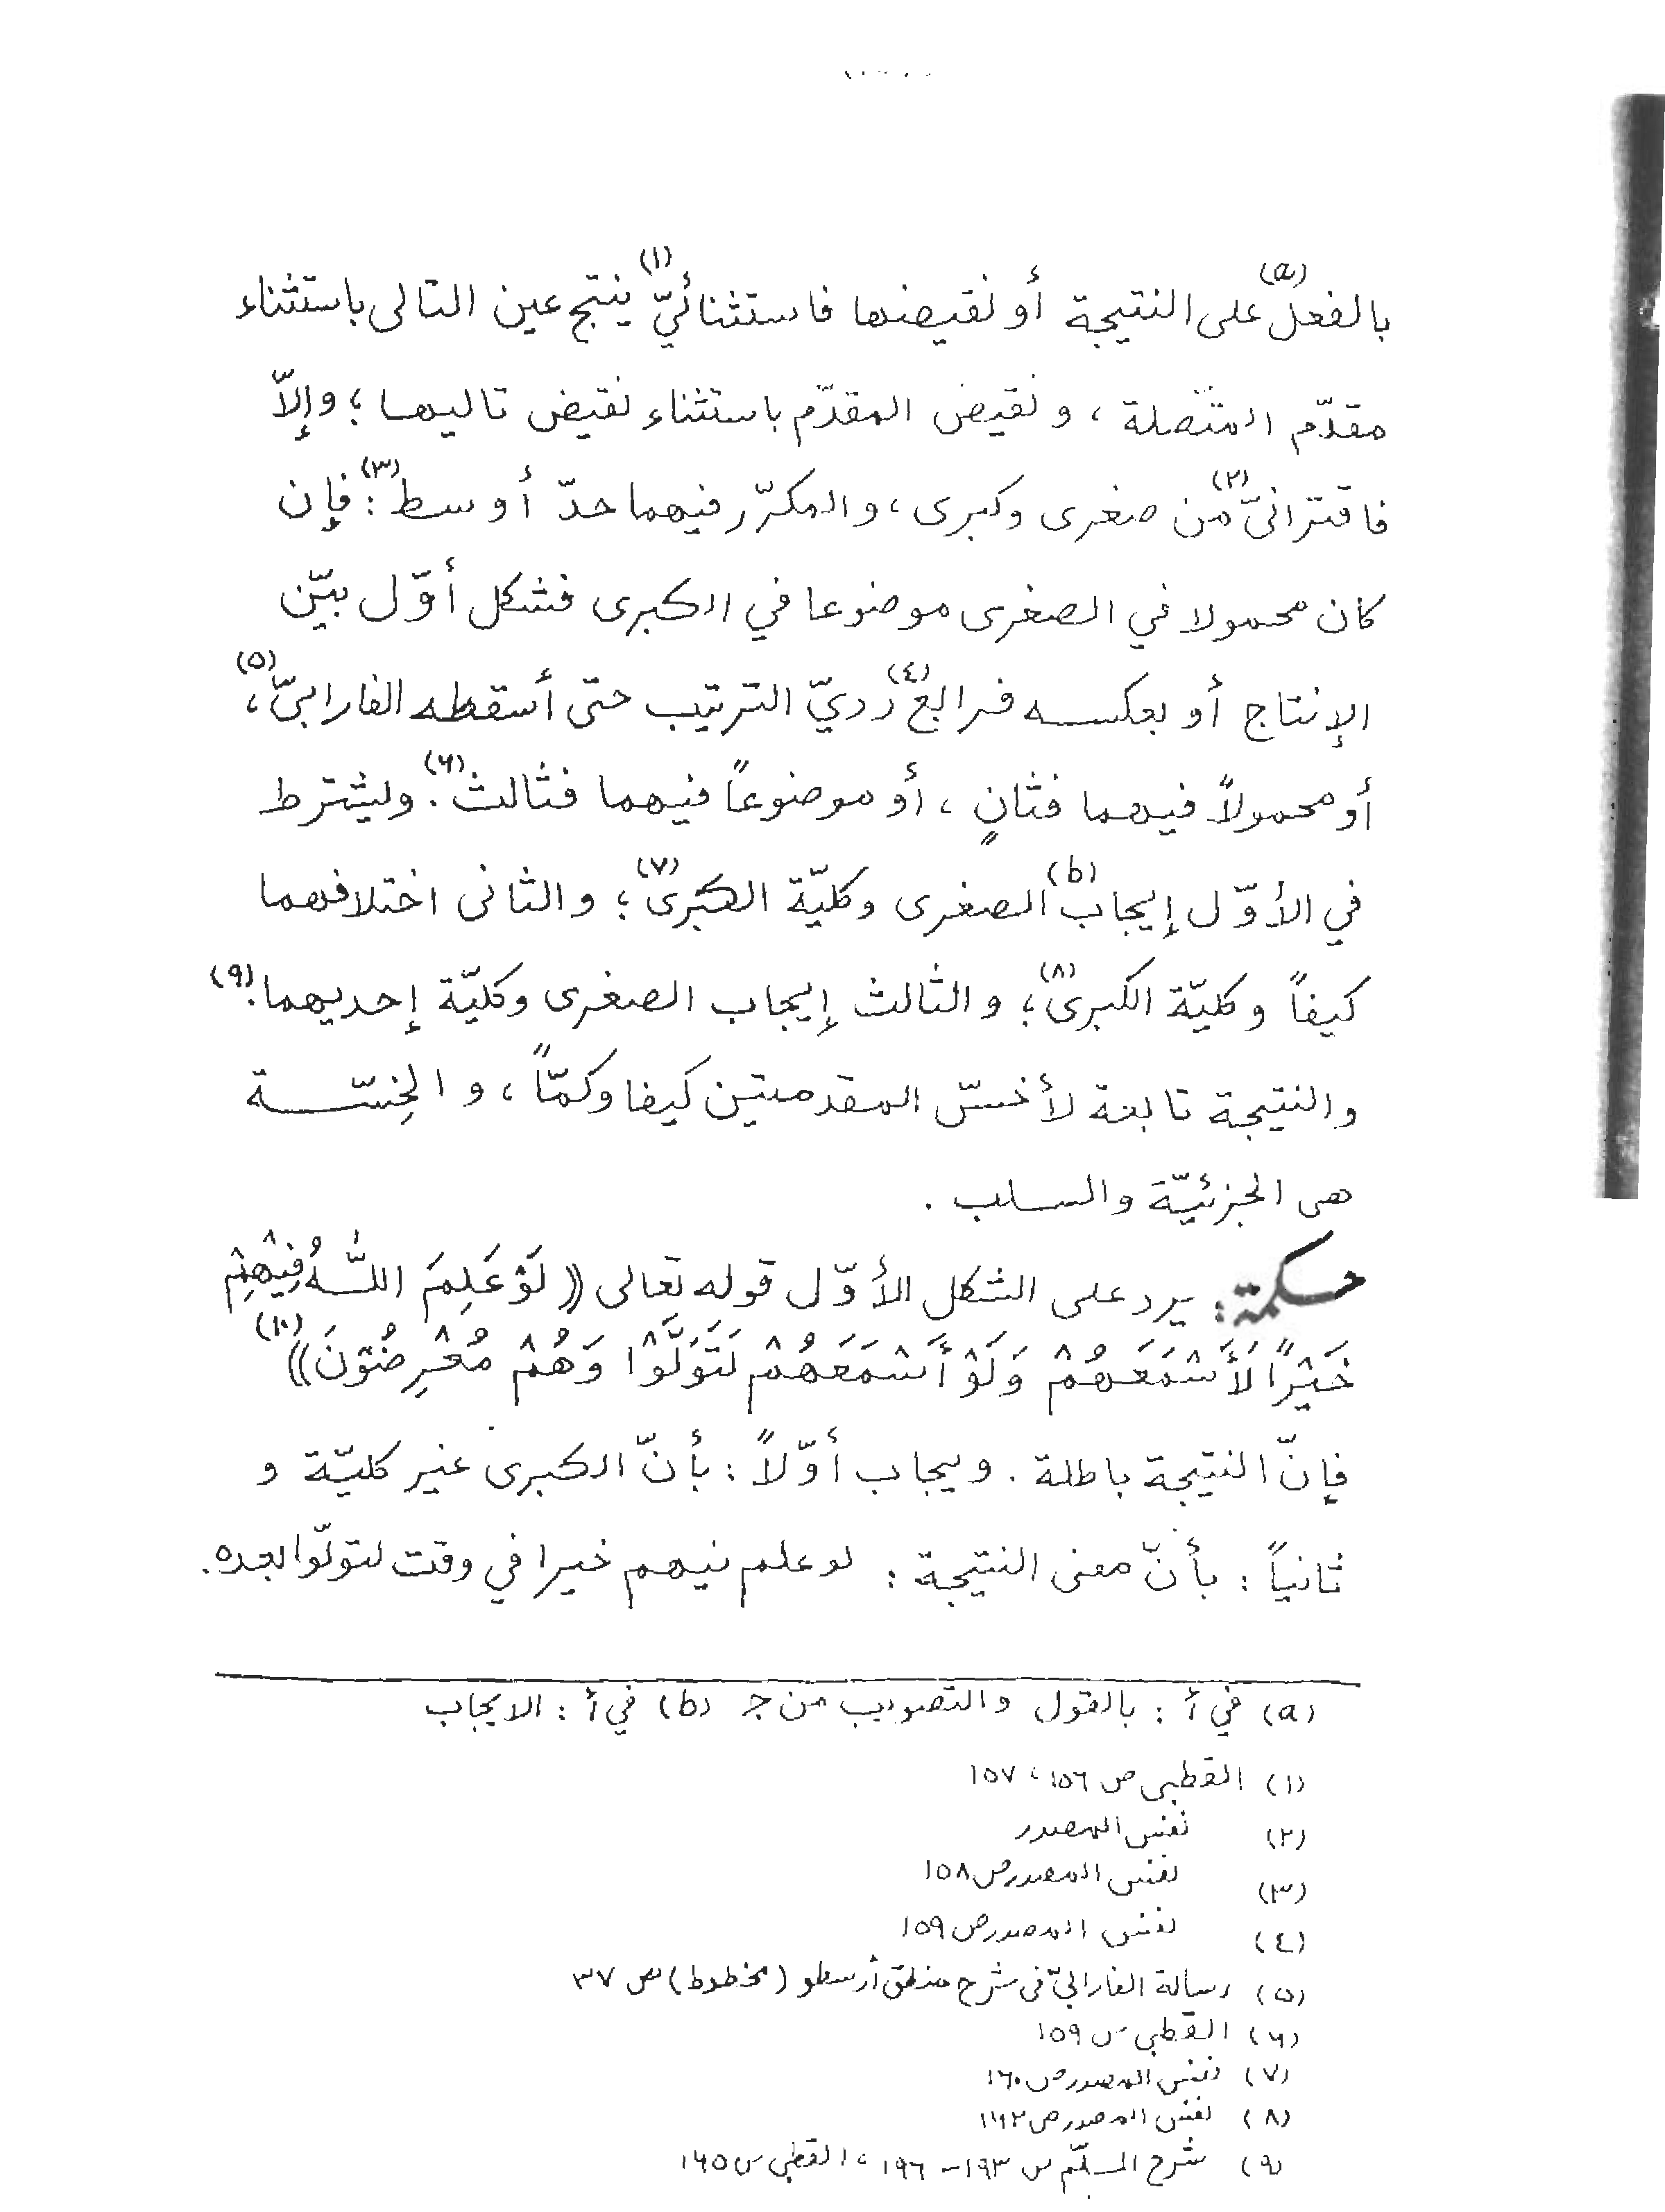 بالفعل(a) على النتيجة أو نقيضها فاستثنائيّ(١) ينتج عين التالى باستثناء
مقدّم المتّصلة ، ونقيض المقدّم باستثناء نقيض تاليها ؛ وإلاّ
فاقترانىّ(٢) من صغرى وكبرى ، والمكرّر فيهما حدّ أوسط(٣) : فإن
كان محمولا في الصغرى موضوعا في الكبرى فشكل أوّل بيّن
الإنتاج أو بعكسه فرابع(٤) رديّ الترتيب حتى أسقطه الفارابىّ(٥) ،
أو محمولاً فيهما فثانٍ ، أو موضوعاً فيهما فثالث(٦) . وليشترط
في الأوّل إيجاب(b) الصغرى وكليّة الكبرى(٧) ؛ والثانى اختلافهما
كيفاً وكليّة الكبرى(٨) ؛ والثالث إيجاب الصغرى وكليّة إحديهما .(٩)
والنتيجة تابعة لأخسّ المقدمتين كيفا وكمّاً ، والخِسّة
هى الجزئيّة والسلب .
حكمة : يرد على الشكل الأوّل قوله تعالى ((لَوْ عَلِمَ اللَّهُ فِيْهِمْ
خَيْرًا لَأَسْمَعَهُمْ وَلَوْ أَسْمَعَهُمْ لَتَوَلَّوْا وَهُمْ مُعْرِضُوْنَ))(١٠)
فإنّ النتيجة باطلة . ويجاب أوّلاً : بأنّ الكبرى غير كليّة و
ثانياً : بأنّ معنى النتيجة : لو علم فيهم خيرا في وقت لتولّوا بعده .
(a) في أ : بالقول والتصويب من ج (b) في أ : الايجاب
(١) القطبى ص ١٥٦ ، ١٥٧
(٢) نفس المصدر
(٣) نفس المصدر ص ١٥٨
(٤) نفس المصدر ص ١٥٩
(٥) رسالة الفارابىّ فى شرح منطق أرسطو (مخطوط) ص ٣٧
(٦) القطبى ص ١٥٩
(٧) نفس المصدر ص ١٦٠
(٨) نفس المصدر ص ١٦٢
(٩) شرح السلّم ص ١٩٣ - ١٩٦ ، القطبى ص ١٦٥